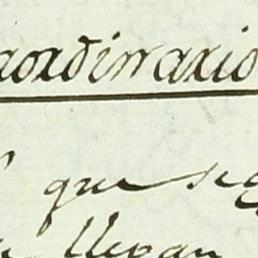 raordinario
que se
llevan